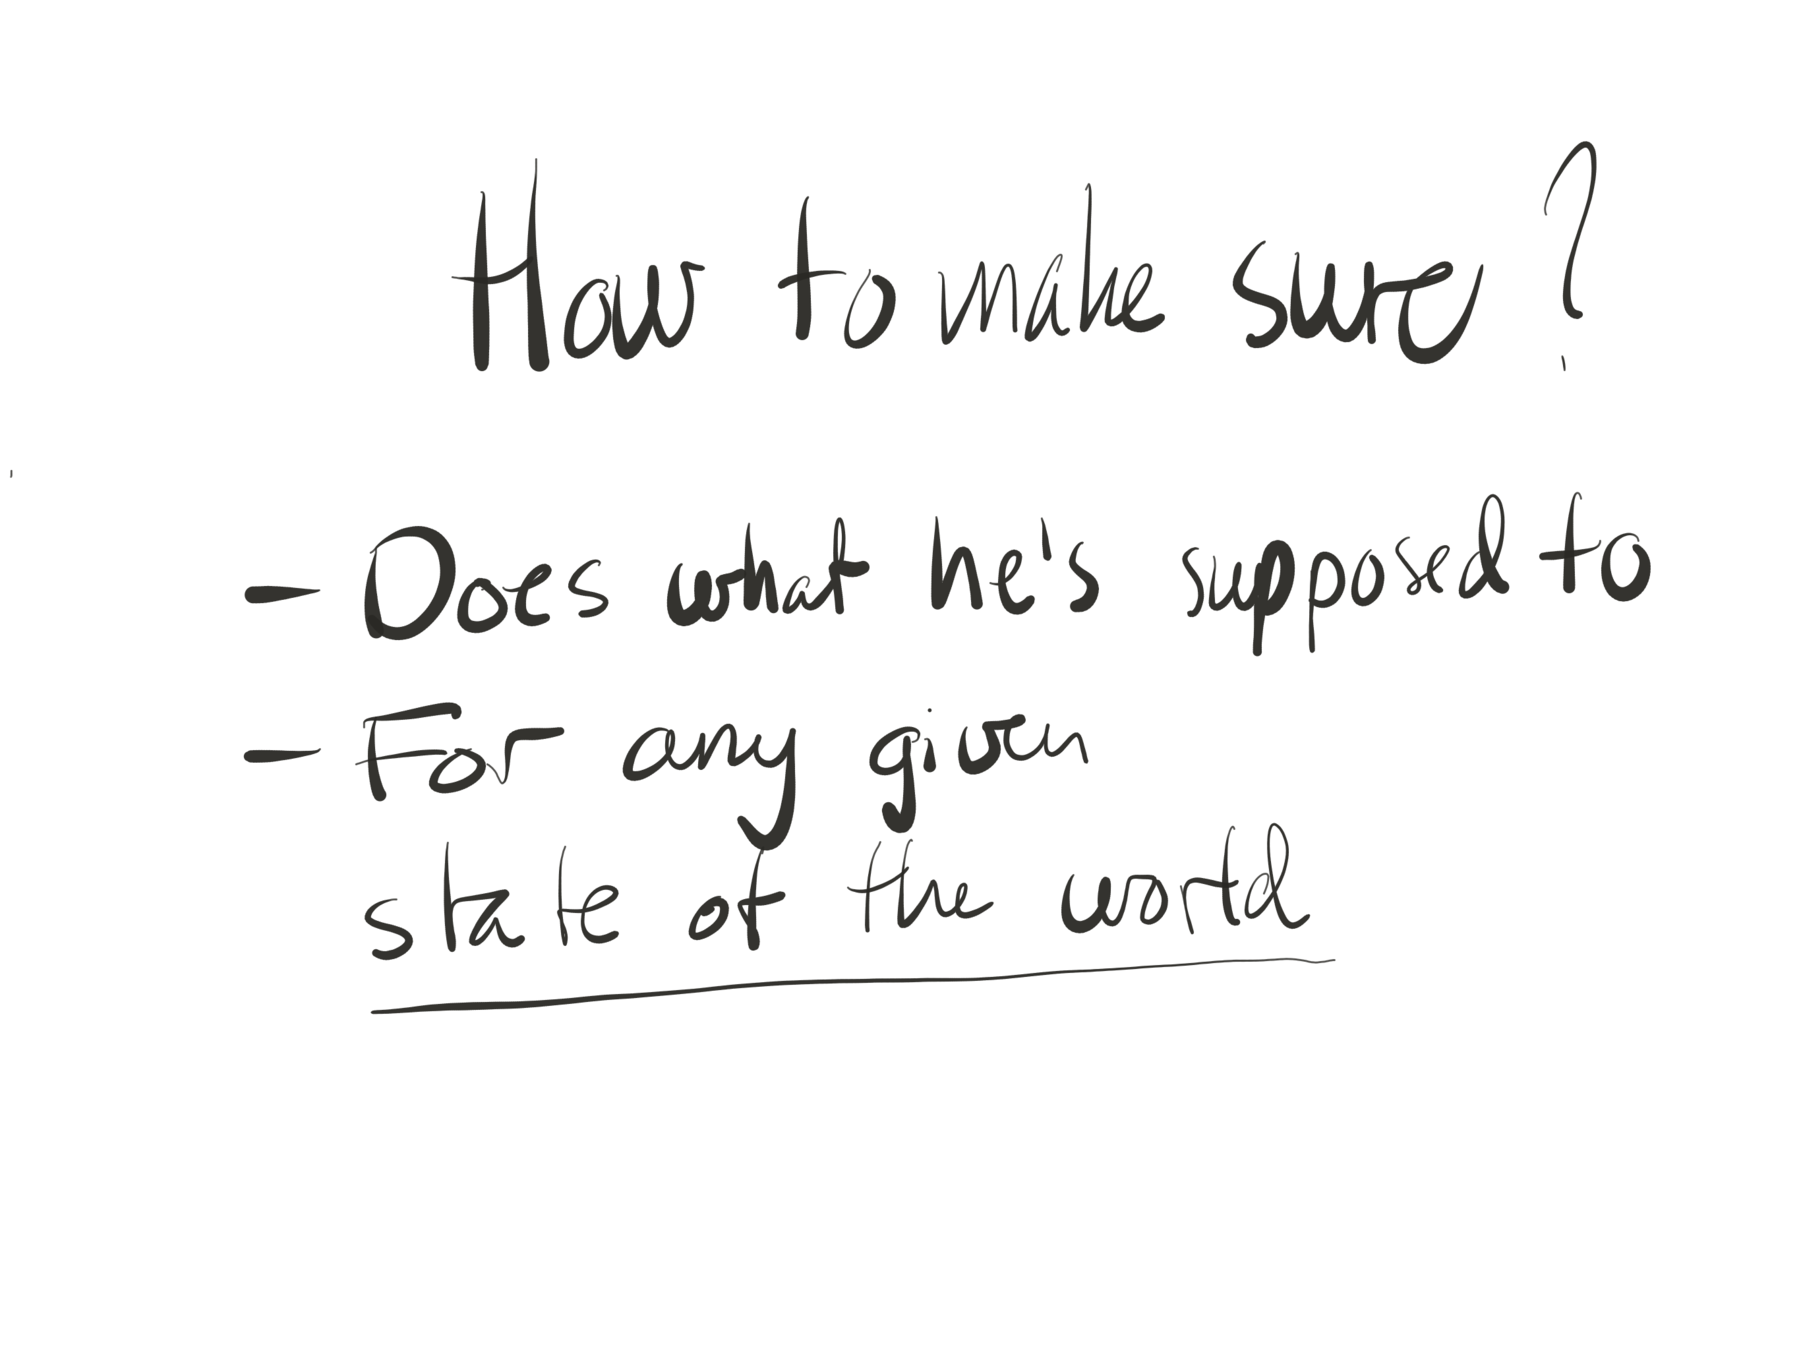 How to make sure?
- Does what he's supposed to
- For any given
state of the world